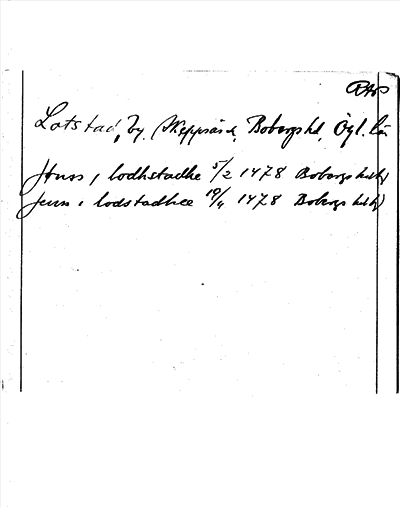 RAP
Lotstad, by, Skeppsås s., Bobergs hd, Ögl. län
Jöns i lodhstadhe 5/2 1478 Bobergs
Jens i lodstadhee 19/4 1478 Bobergs